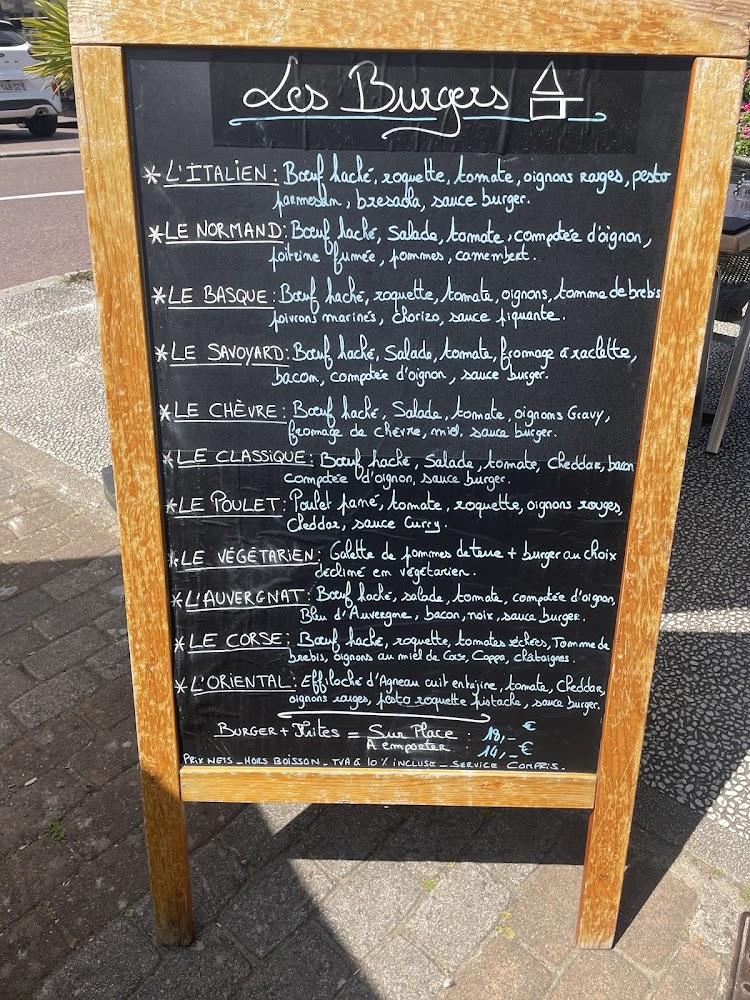 Les Burgers
* L'ITALIEN : Bœuf haché, roquette, tomate, oignons rouges, pesto
parmesan, bresaola, sauce burger.
* LE NORMAND : Bœuf haché, Salade, tomate, compotée d'oignon,
poitrine fumée, pommes, camembert.
* LE BASQUE : Bœuf haché, roquette, tomate, oignons, tomme de brebis
poivrons marinés, chorizo, sauce piquante.
* LE SAVOYARD : Bœuf haché, Salade, tomate, fromage à raclette,
bacon, compotée d'oignon, sauce burger.
* LE CHÈVRE : Bœuf haché, Salade, tomate, oignons Gravy,
fromage de chèvre, miel, sauce burger.
* LE CLASSIQUE : Bœuf haché, Salade, tomate, Cheddar, bacon
compotée d'oignon, sauce burger.
* LE POULET : Poulet pané, tomate, roquette, oignons rouges,
cheddar, sauce curry.
* LE VÉGÉTARIEN : Galette de pommes de terre + burger au choix
décliné en végétarien.
* L'AUVERGNAT : Bœuf haché, salade, tomate, compotée d'oignon,
Bleu d'Auvergne, bacon, noix, sauce burger.
* LE CORSE : Bœuf haché, roquette, tomates séchées, Tomme de
brebis, oignons au miel de Corse, Coppa, châtaignes.
* L'ORIENTAL : Effiloché d'Agneau cuit en tajine, tomate, Cheddar,
oignons rouges, pesto roquette pistache, sauce burger.
BURGER + Frites = Sur Place : 18,_ €
A emporter : 14,_ €
PRIX NETS _ HORS BOISSON _ TVA à 10 % INCLUSE _ SERVICE COMPRIS.